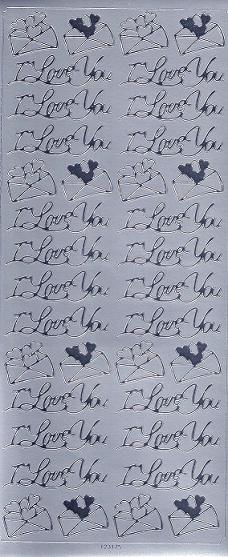 I Love You I Love You
I Love You I Love You
I Love You I Love You
I Love You I Love You
I Love You I Love You
I Love You I Love You
I Love You I Love You
I Love You I Love You
I Love You I Love You
I Love You I Love You